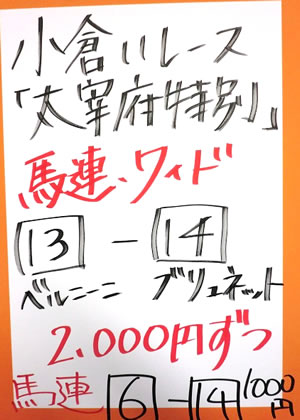 小倉11レース
「太宰府特別」
馬連、ワイド
13 - 14
ベルニーニ ブリュネット
2.000円ずつ
馬連 6 - 14 1000円